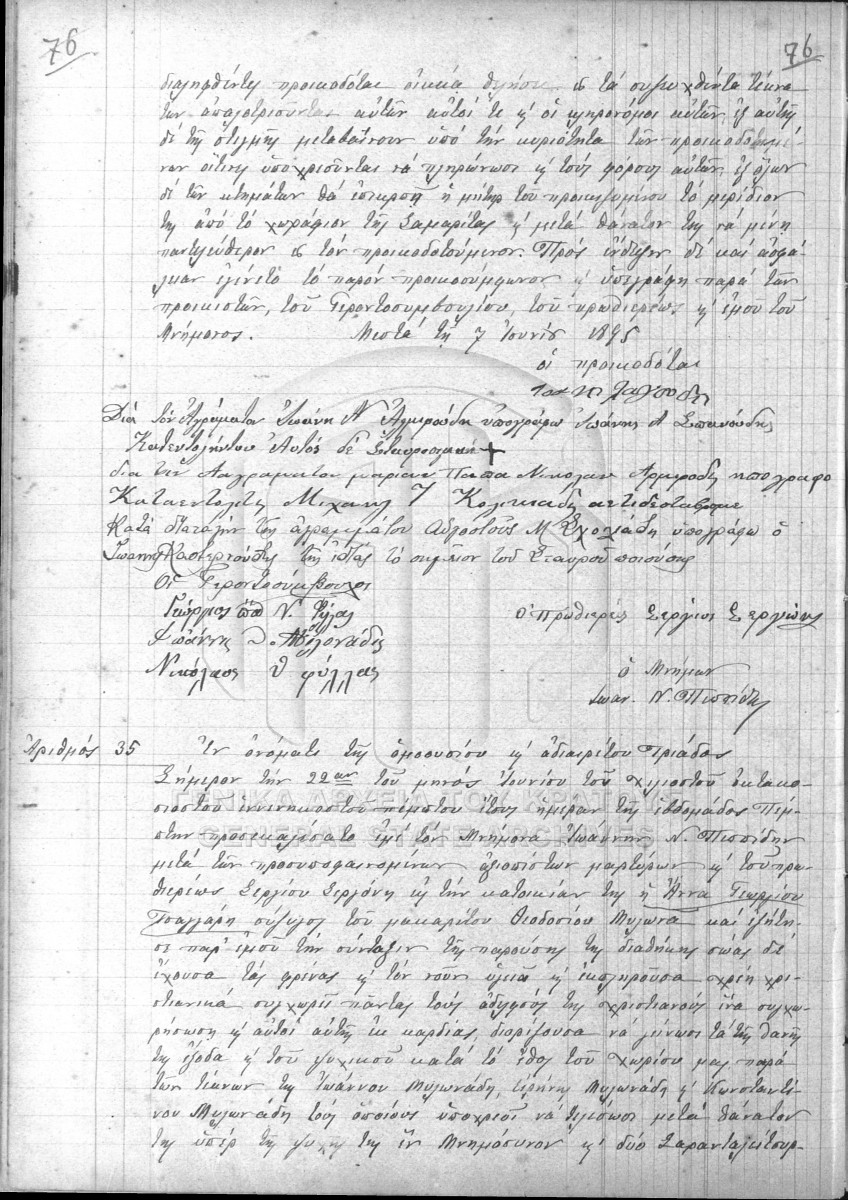 76 76
διαληφθέντες προικοδόται οἰκείᾳ θελήσει εἰς τὰ συζευχθέντα τέκνα
των ἀπαλοτριοῦνται αὐτῶν αὐτοί τε κ' οἱ κληρονόμοι αὐτῶν, ἐξ αὐτῆς
δὲ τῆς στιγμῆς μεταβαίνουν ὑπὸ τὴν κυριότητα τῶν προικοδοτουμέ-
νων οἵτινες ὑποχρεοῦνται νὰ πληρώνωσι κ' τοὺς φόρους αὐτῶν, ἐξ ὅλων
δὲ τῶν κτημάτων θὰ ἐπικρατῇ ἡ μήτηρ του προικιζομένου τὸ μερίδιον
της ἀπὸ τὸ χωράφιον τῆς Σαμαρίτας κ' μετὰ θάνατόν της νὰ μένῃ
παντελεύθερον εἰς τὸν προικοδοτούμενον. Πρὸς ἔνδειξιν δὲ καὶ ἀσφά-
λειαν ἐγένετο τὸ παρὸν προικοσύμφωνον κ' ὑπεγράφη παρὰ τῶν
προικιστῶν, τοῦ Γεροντοσυμβουλίου, τοῦ πρωθιερέως κ' ἐμοῦ τοῦ
Μνήμονος. Μεστὰ τῇ 7 Ἰουνίου 1895
οἱ προικοδόται
Διὰ τὸν ἀγράματον Ἰωάνη Ν Ἀλμιρούδη ὑπογράφω Ἰωάνης Δ Σπανούδης
Κατ ἐντολήν του Αὐτὸς δὲ ἐσταυροσημείωσε +
δια την Ααγραματον μαριαν Παπα Νικολαου Αρμιροδη ηπογραφο
Καταεντολις της Μιχαηλ Γ Κολικιαδης
Κατὰ διαταγὴν τῆς ἀγραμμάτου Μ Σχολάδη ὑπογράφω ὁ
Ἰωάννης Καστερούδης τῆς ἰδίας τὸ σημεῖον τοῦ Σταυροῦ ποιούσης
Οἱ Γεροντοσύμβουλοι
Γεώργιος Ν. Φύλας ὁ πρωθιερεύς Σεργιος Σεργώνης
Ἰωάννης Δ. Μυλονάδης
Νικόλαος Θ φύλλας ὁ Μνήμων
Ἰωαν. Ν. Πισπίδης
Ἀριθμός 35 Ἐν ὀνόματι τῆς ὁμοουσίου κ' ἀδιαιρέτου Τριάδος
Σήμερον τὴν 22αν τοῦ μηνὸς Ἰουνίου τοῦ χιλιοστοῦ ὀκτακο-
σιοστοῦ ἐννενηκοστοῦ πέμπτου ἔτους ἡμέραν τῆς ἑβδομάδος Πέμ-
πτην προσεκαλέσατο ἐμὲ τὸν Μνήμονα Ἰωάννην Ν. Πισπίδην
μετὰ τῶν προσυποφαινομένων ἀξιοπίστων μαρτύρων κ' τοῦ πρω-
θιερέως Σεργίου Σεργώνη εἰς τὴν κατοικίαν της ἡ Ἄννα Γεωργίου
Τσαγγάρη σύζυγος τοῦ μακαρίτου Θεοδοσίου Μυλωνᾶ καὶ ἐζήτη-
σε παρ' ἐμοῦ τὴν σύνταξιν τῆς παρούσης της διαθήκης σώας δὲ
ἔχουσα τὰς φρένας κ' τὸν νοῦν ὑγιᾶ κ' ἐκπληροῦσα χρέη χρι-
στιανικὰ συγχωρεῖ πάντας τοὺς ἀδελφούς της χριστιανοὺς ἵνα συγχω-
ρήσωσι κ' αὐτοὶ αὐτῇ ἐκ καρδίας, διορίζουσα νὰ γείνωσι τὰ τῆς θανῆς
της ἔξοδα κ' τοῦ ψυχικοῦ κατὰ τὸ ἔθος τοῦ χωρίου μας παρὰ
τῶν τέκνων της Ἰωάννου Μυλωνάδη, Εἰρήνης Μυλωνάδη κ' Κωνσταντί-
νου Μυλωνάδη τοὺς ὁποίους ὑποχρεοῖ νὰ τελέσωσι μετὰ θάνατόν
της ὑπὲρ τῆς ψυχῆς της ἓν Μνημόσυνον κ' δύο Σαρανταλείτουρ-
ΓΕΝΙΚΑ ΑΡΧΕΙΑ ΤΟΥ ΚΡΑΤΟΥΣ
GENERAL STATE ARCHIVES